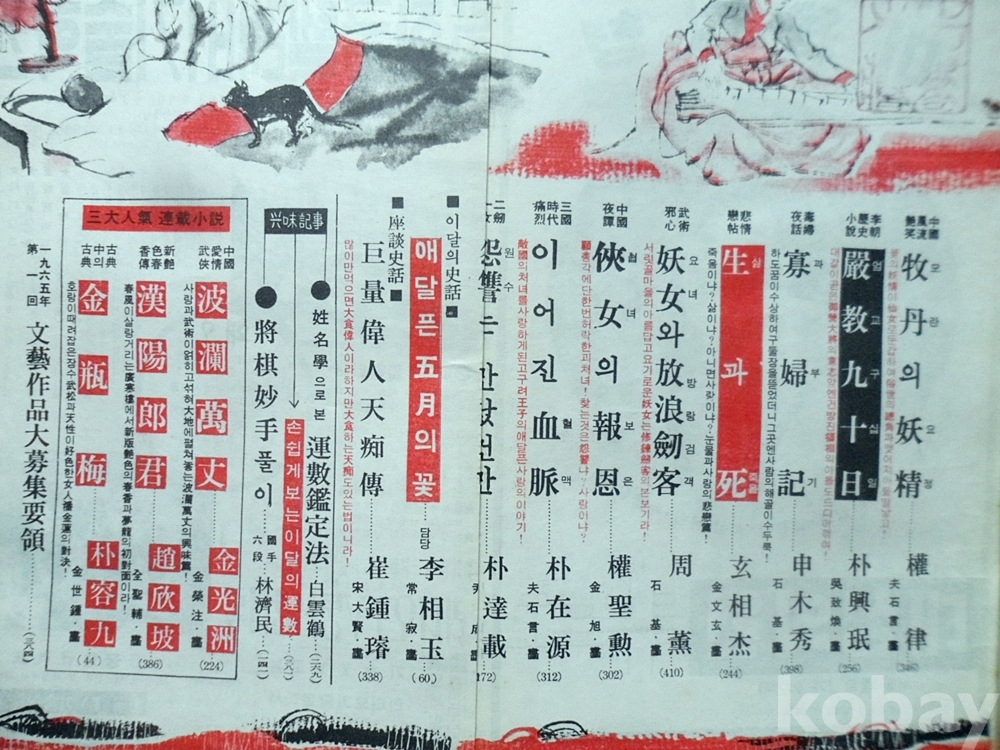 中國風流艷笑
牧丹의 妖精
모란 요정
權律
夫石言·畵
(346)
李朝歷史小說
嚴敎九十日
엄교구십일
朴興珉
吳致煥·畵
(256)
毒婦夜話
寡婦記
과부기
하도꿈이수상하여구들장을뜯었더니그곳엔사람의해골이수두룩!
申木秀
石基·畵
(398)
悲情戀帖
生과死
죽음이냐?삶이냐?아니면사랑이냐?눈물과사랑의悲戀篇!
玄相杰
金文玄·畵
(244)
武術邪心
妖女와放浪劒客
요녀 방랑검객
周薰
石基·畵
(410)
中國夜譚
俠女의報恩
협녀 보은
權聖勳
金旭·畵
(302)
三國時代痛烈
이어진血脈
혈맥
敵國의처녀를사랑하게된고구려王子의애달픈사랑의이야기!
朴在源
夫石言·畵
(312)
二劒女
怨讐는
원수
朴達載
■이달의史話■
애달픈五月의꽃
담당
李相玉
常寂·畵
(60)
■座談史話■
巨量偉人天痴傳
많이만먹으면大食偉人이라하지만大食하는天痴도있는법이니라!
崔鍾瑢
宋大賢·畵
(338)
兴味記事
●姓名學으로본 運數鑑定法
白雲鶴
(二六九)
손쉽게보는이달의運數
(三八二)
●將棋妙手풀이
國手六段
林濟民
(一四一)
三大人氣 連載小說
中國愛情武俠
波瀾萬丈
사랑과武術이얽히고섞혀大地에펼쳐놓는波瀾萬丈의興味篇!
金光洲
金榮注·畵
(224)
新艶色春香傳
漢陽郎君
春風이살랑거리는廣寒樓에서新版艶色의春香과夢龍의初對面이라!
趙欣坡
全聖輔·畵
(386)
古典中의古典
金瓶梅
호랑이때려잡은장수武松과天性이好色한女人潘金蓮의對決!
朴容九
金世鍾·畵
(44)
一九六五年
第一回
文藝作品大募集要領
(三六四)
kobay